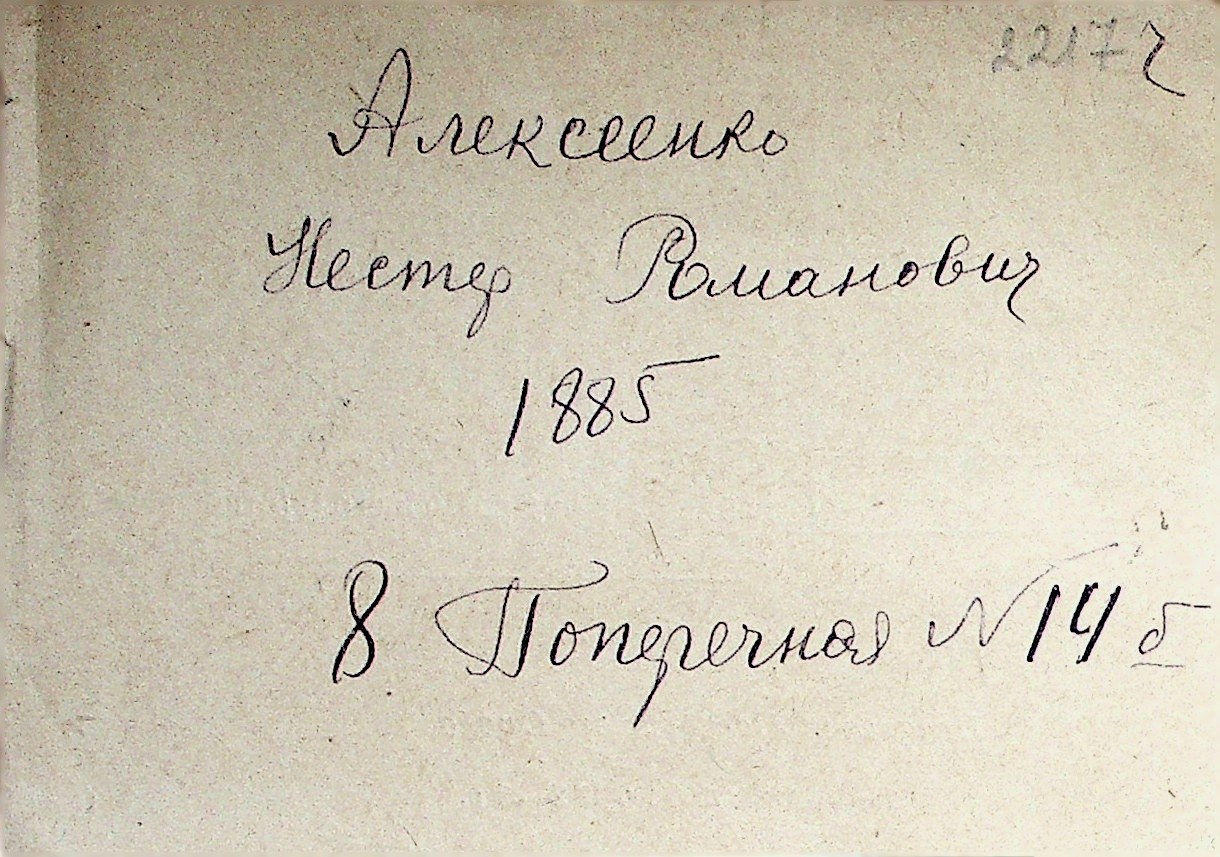 2217 ч
Алексеенко
Нестер Романович
1885
8 Поперечная № 14 б